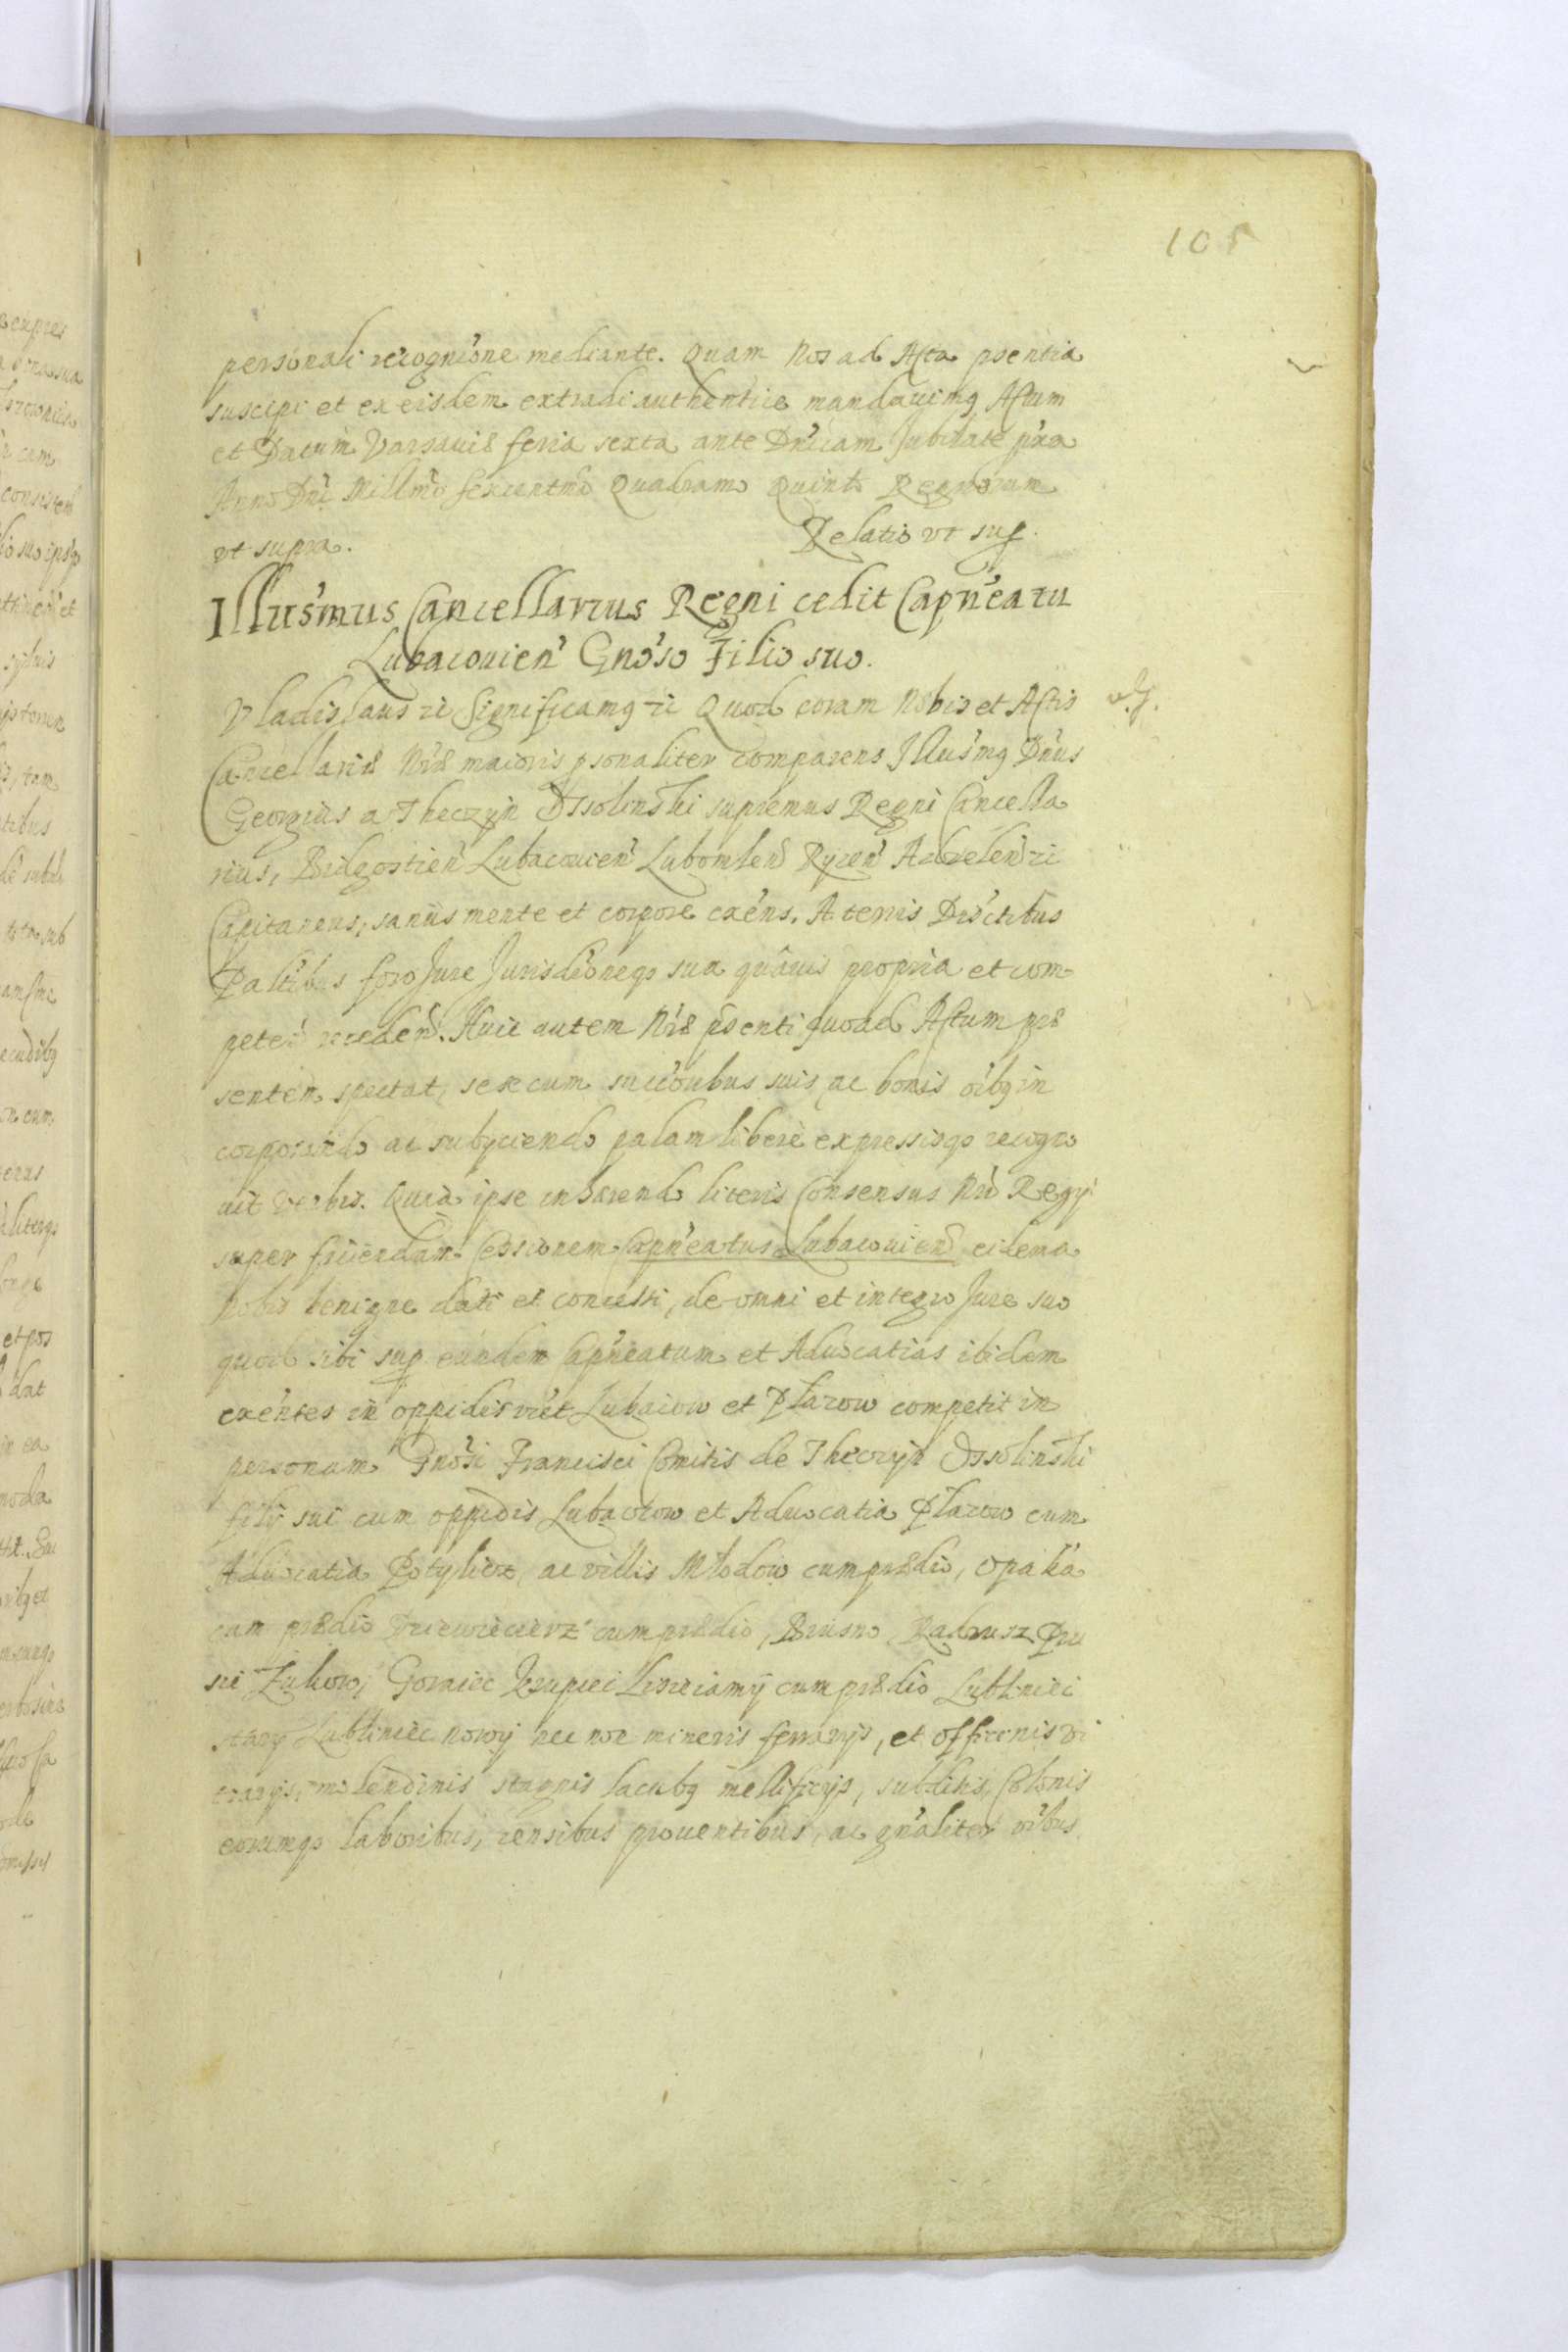 105
personali recogn̄ione mediante. Quam Nos ad Acta p̄sentia
suscipi et ex eisdem extradi authentice mandauimq Actum
et Datum Varsauiæ feria sexta ante Dn̄icam Jubilate p̄xa
Anno Dn̄i Millmo sexcentmo Quadram̄o Quinto Regnorum
vt supra. Relatio vt sup.
Illus̄mus Cancellarius Regni cedit Capn̄eatu
Lubacouien̄ Gn̄oso Filio suo.
Vladislaus zc Significamq zc Quod coram Nobis et Actis
Cancellariæ N̄ræ maioris p̄sonaliter comparens Illus̄mq Dn̄us
Georgius a Theczyn Ossolinski supremus Regni Cancella
rius, Bidgostien̄ Lubacouien̄ Lubomlen̄ Rycen̄ Adzelen̄ zc
Capitaneus, sanus mente et corpore exn̄s. A terris Dis̄ctibus
Palt̄ibus foro Jure Jurisd̄oneqs sua quāuis propria et com
peten̄ receden̄. Huic autem N̄ræ p̄senti quoad Actum præ
sentem spectat, sese cum succ̄oribus suis ac bonis oībq in
corporando ac subyciendo palam libere expressisqs recogno
uit verbis. Quia ipse inhærendo literis Consensus N̄ri Regÿ
super faciendam Cessionem Capn̄eatus Lubacouien̄ eidem a
Nobis benigne dati et concessi, de omni et integro Jure suo
quod sibi sup eundem Capn̄eatum et Aduocatias ibidem
exn̄tes in oppidis vīt Lubaczow et Płazow competit in
personam Gn̄osi Francisci Comitis de Theczyn Ossolinski
filÿ sui cum oppidis Lubaczow et Aduocatia Płazow cum
Aduocatia Potylicz, ac villis Młodow cum prædio, Opaka
cum prædio Dziewiecierz cum prædio, Brusno, Radrusz Pru
sie Zukow, Goraiec Krupiec Lisieiamÿ cum prædio Lubliniec
starÿ Lubliniec nowÿ nec non mineris ferrarÿs, et officinis vi
trarÿs, molendinis stagnis lacubq mellificÿs, subditis, Colonis
eorumqs laboribus, censibus prouentibus, ac gn̄aliter oībus